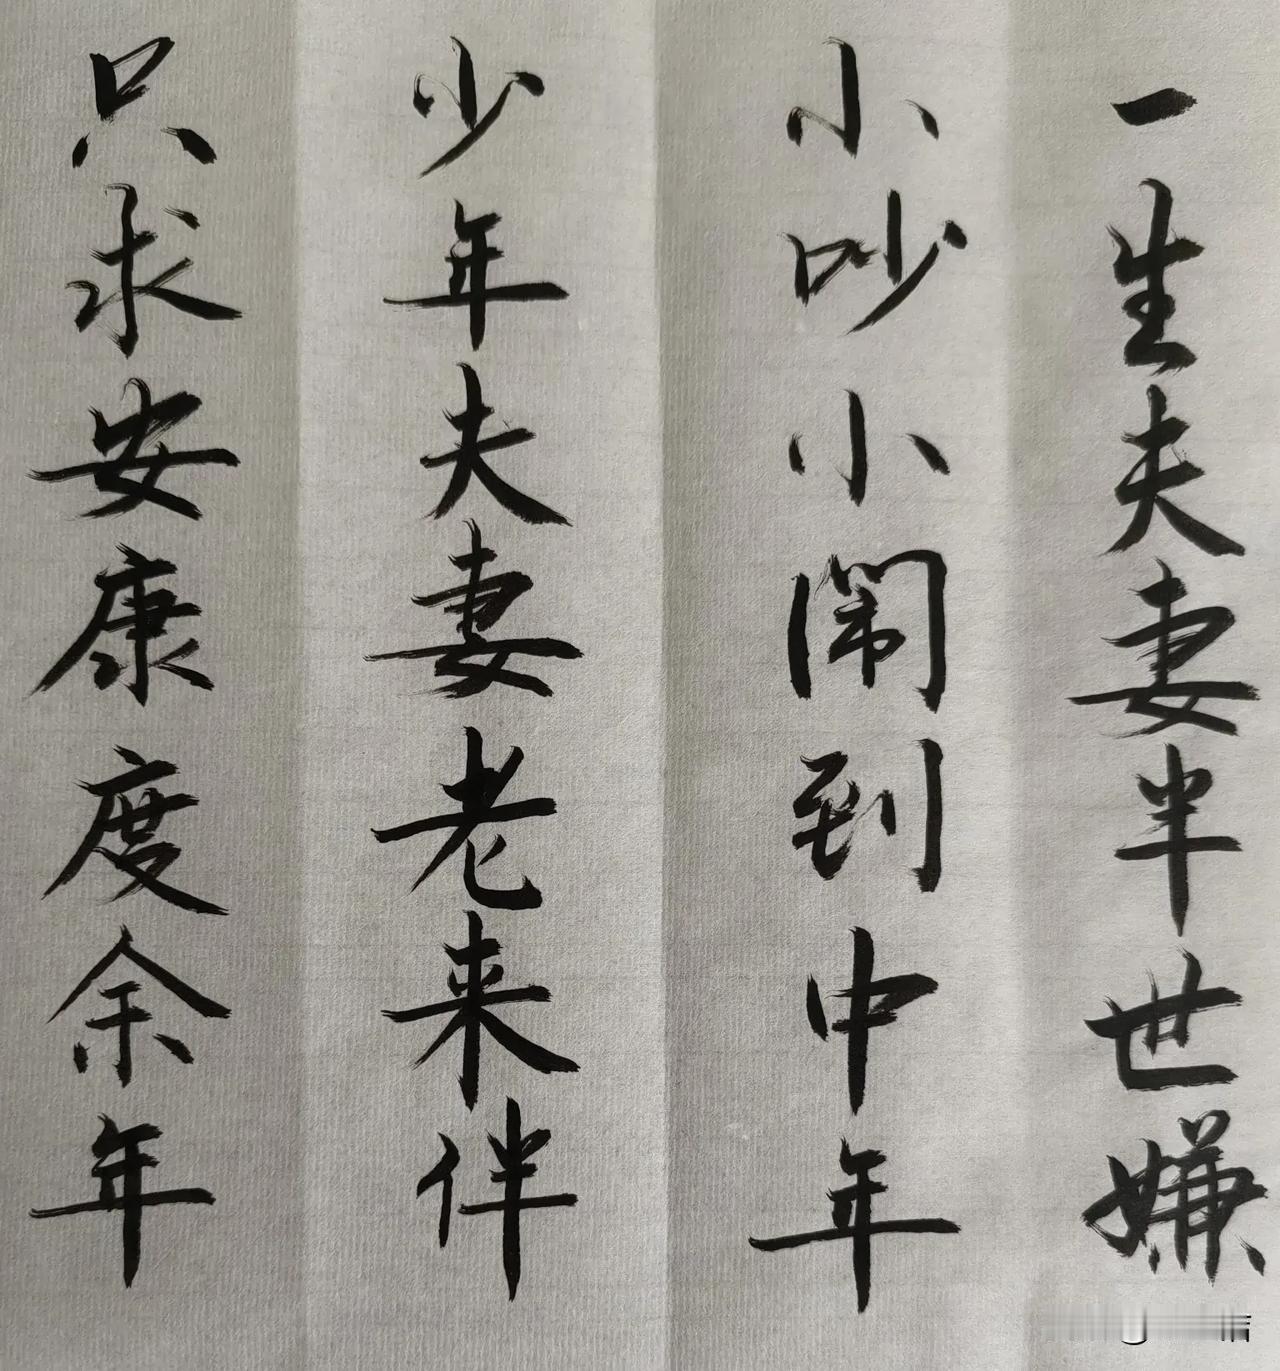 一生夫妻半世嫌
小吵小闹到中年
少年夫妻老来伴
只求安康度余年